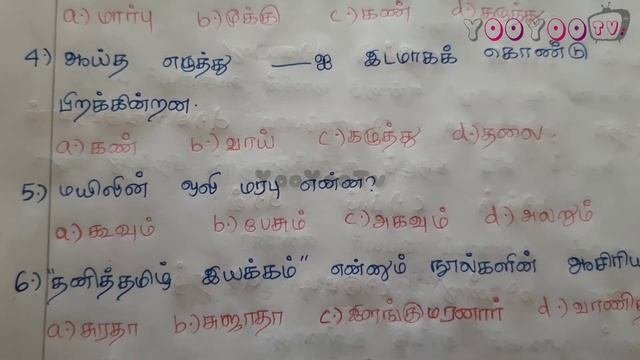 a.) மார்பு b.) மூக்கு c.) கண் d.) கழுத்து
YOOYOOTV
4) ஆய்த எழுத்து —ஐ இடமாகக் கொண்டு
பிறக்கின்றன.
a.) கண் b.) வாய் c.) கழுத்து d.) தலை.
YooYooTv
5.) மயிலின் ஒலி மரபு என்ன?
a.) கூவும் b.) பேசும் c.) அகவும் d.) அலறும்
6.) "தனித்தமிழ் இயக்கம்" என்னும் நூல்களின் ஆசிரிய
a.) சுரதா b.) சுஜாதா c.) இளங்குமரனார் d.)